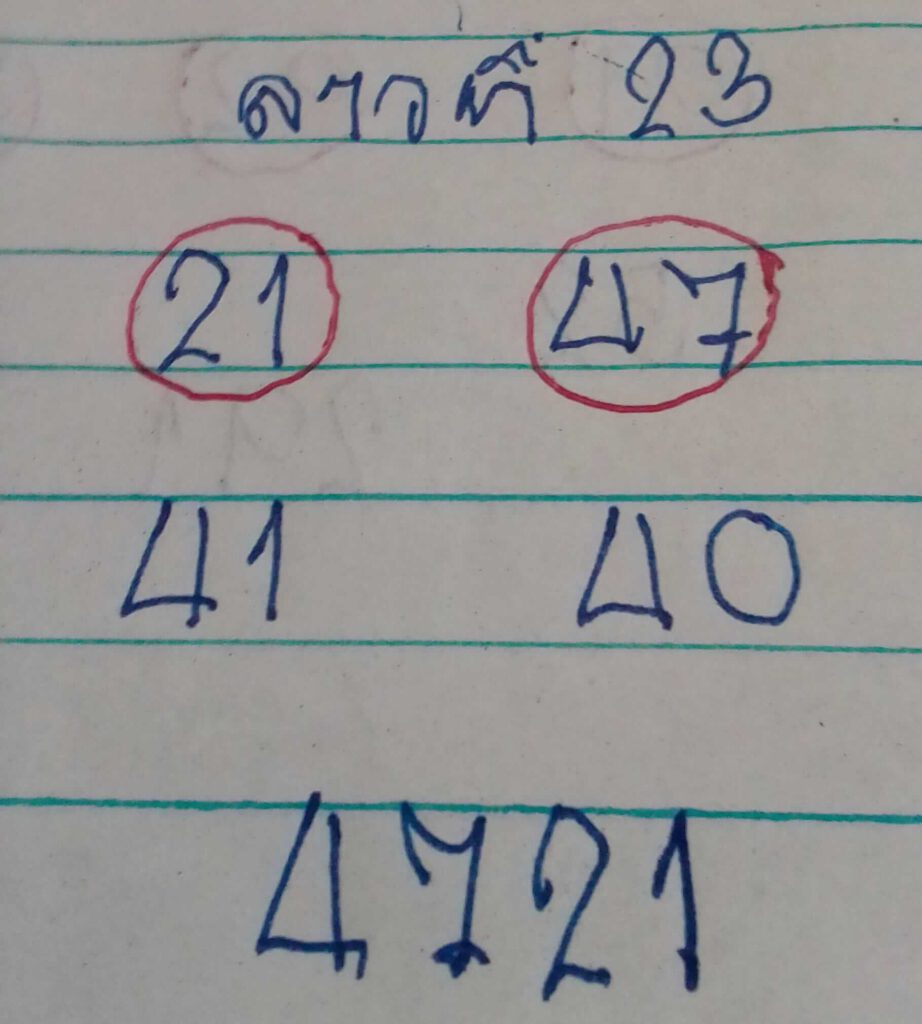 ลาวที่ 23
21 47
41 40
4721